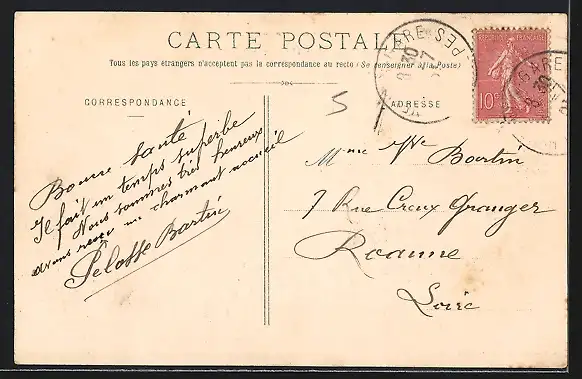 CARTE POSTALE
Tous les pays étrangers n'acceptent pas la correspondance au recto (Se renseigner à la Poste)
CORRESPONDANCE
ADRESSE
RÉPUBLIQUE FRANÇAISE
10c
5
GARE
GARE
Bonne Santé
Il fait un temps superbe
Nous sommes très heureux
avons reçu un charmant accueil
Pélosse Bartin
Mme Vve Bartin
7 Rue Creux Granger
Roanne
Loire